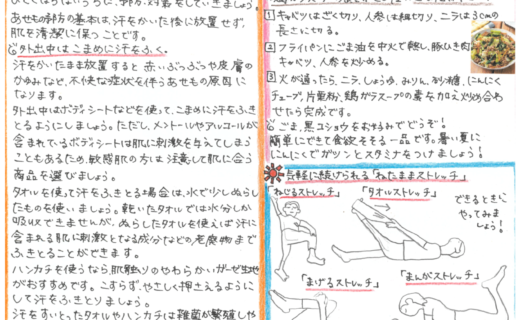 あせもの部分の基本は、汗をかいた後に放置せず、
肌を清潔に保つことです。
◎外出中はこまめに汗をふく。
汗をかいたまま放置すると赤いぶつぶつや皮膚の
かゆみなど、不快な症状を伴うあせもの原因に
なります。
外出中はボディシートなどを使って、こまめに汗をふき
とるようにしましょう。ただし、メントールやアルコールが
含まれているボディシートは肌に刺激を与えてしまう
こともあるため、敏感肌の方は注意して肌に合う
商品を選びましょう。
タオルを使って汗をふきとる場合は、水で少しぬらし
たものを使いましょう。乾いたタオルでは水分しか
吸収できませんが、ぬらしたタオルを使えば汗に
含まれる肌に刺激となる成分などの老廃物まで
ふきとることができます。
ハンカチを使うなら肌触りのやわらかいガーゼ生地
がおすすめです。こすらず、やさしく押さえるように
して汗をふきとりましょう。
汗をすいとったタオルやハンカチは雑菌が繁殖しや
1 キャベツはざく切り、人参は細切り、ニラは3cmの
長さに切る。
2 フライパンにごま油を中火で熱し、豚ひき肉
キャベツ、人参を炒める。
3 火が通ったら、ニラ、しょうゆ、みりん、砂糖、にんにく
チューブ、片栗粉、鶏がらスープの素を加え炒め合わ
せたら完成です。
ごま、黒コショウをお好みでどうぞ!
簡単にできて食欲そそる一品です。暑い夏に
にんにくでガツンとスタミナをつけましょう!
気軽に続けられる「ねたままストレッチ」
「ねじるストレッチ」
「タオルストレッチ」
できるときに
やってみま
しょう!
「まげるストレッチ」
「まんがストレッチ」